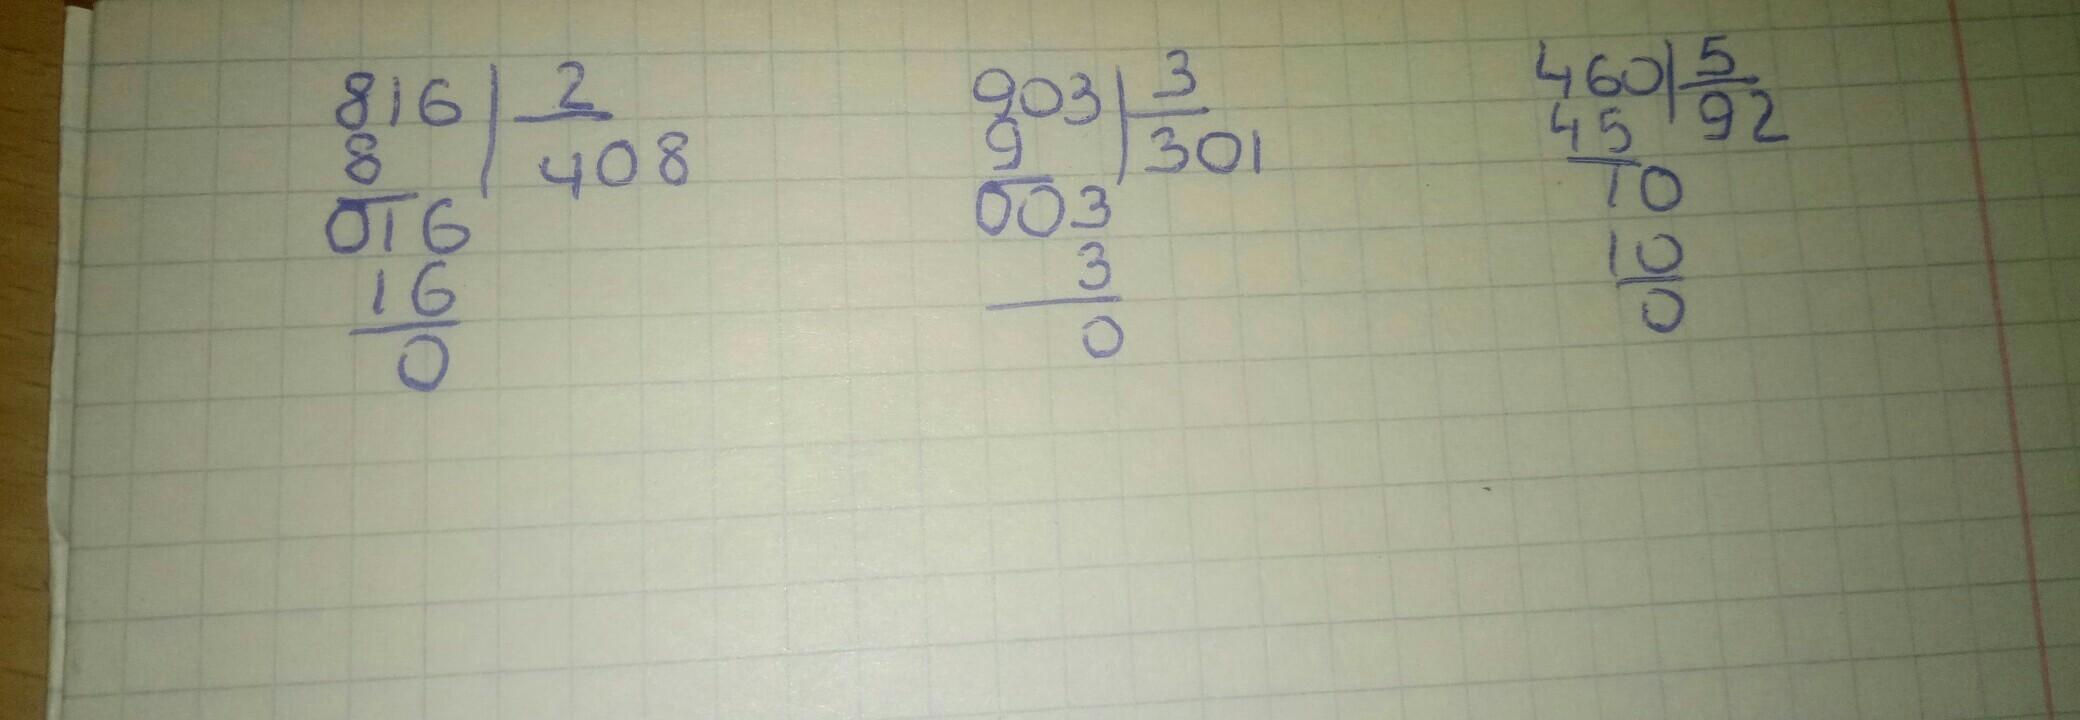 816 | 2
8 | 408
016
16
0
903 | 3
9 | 301
003
3
0
460 | 5
45 | 92
10
10
0